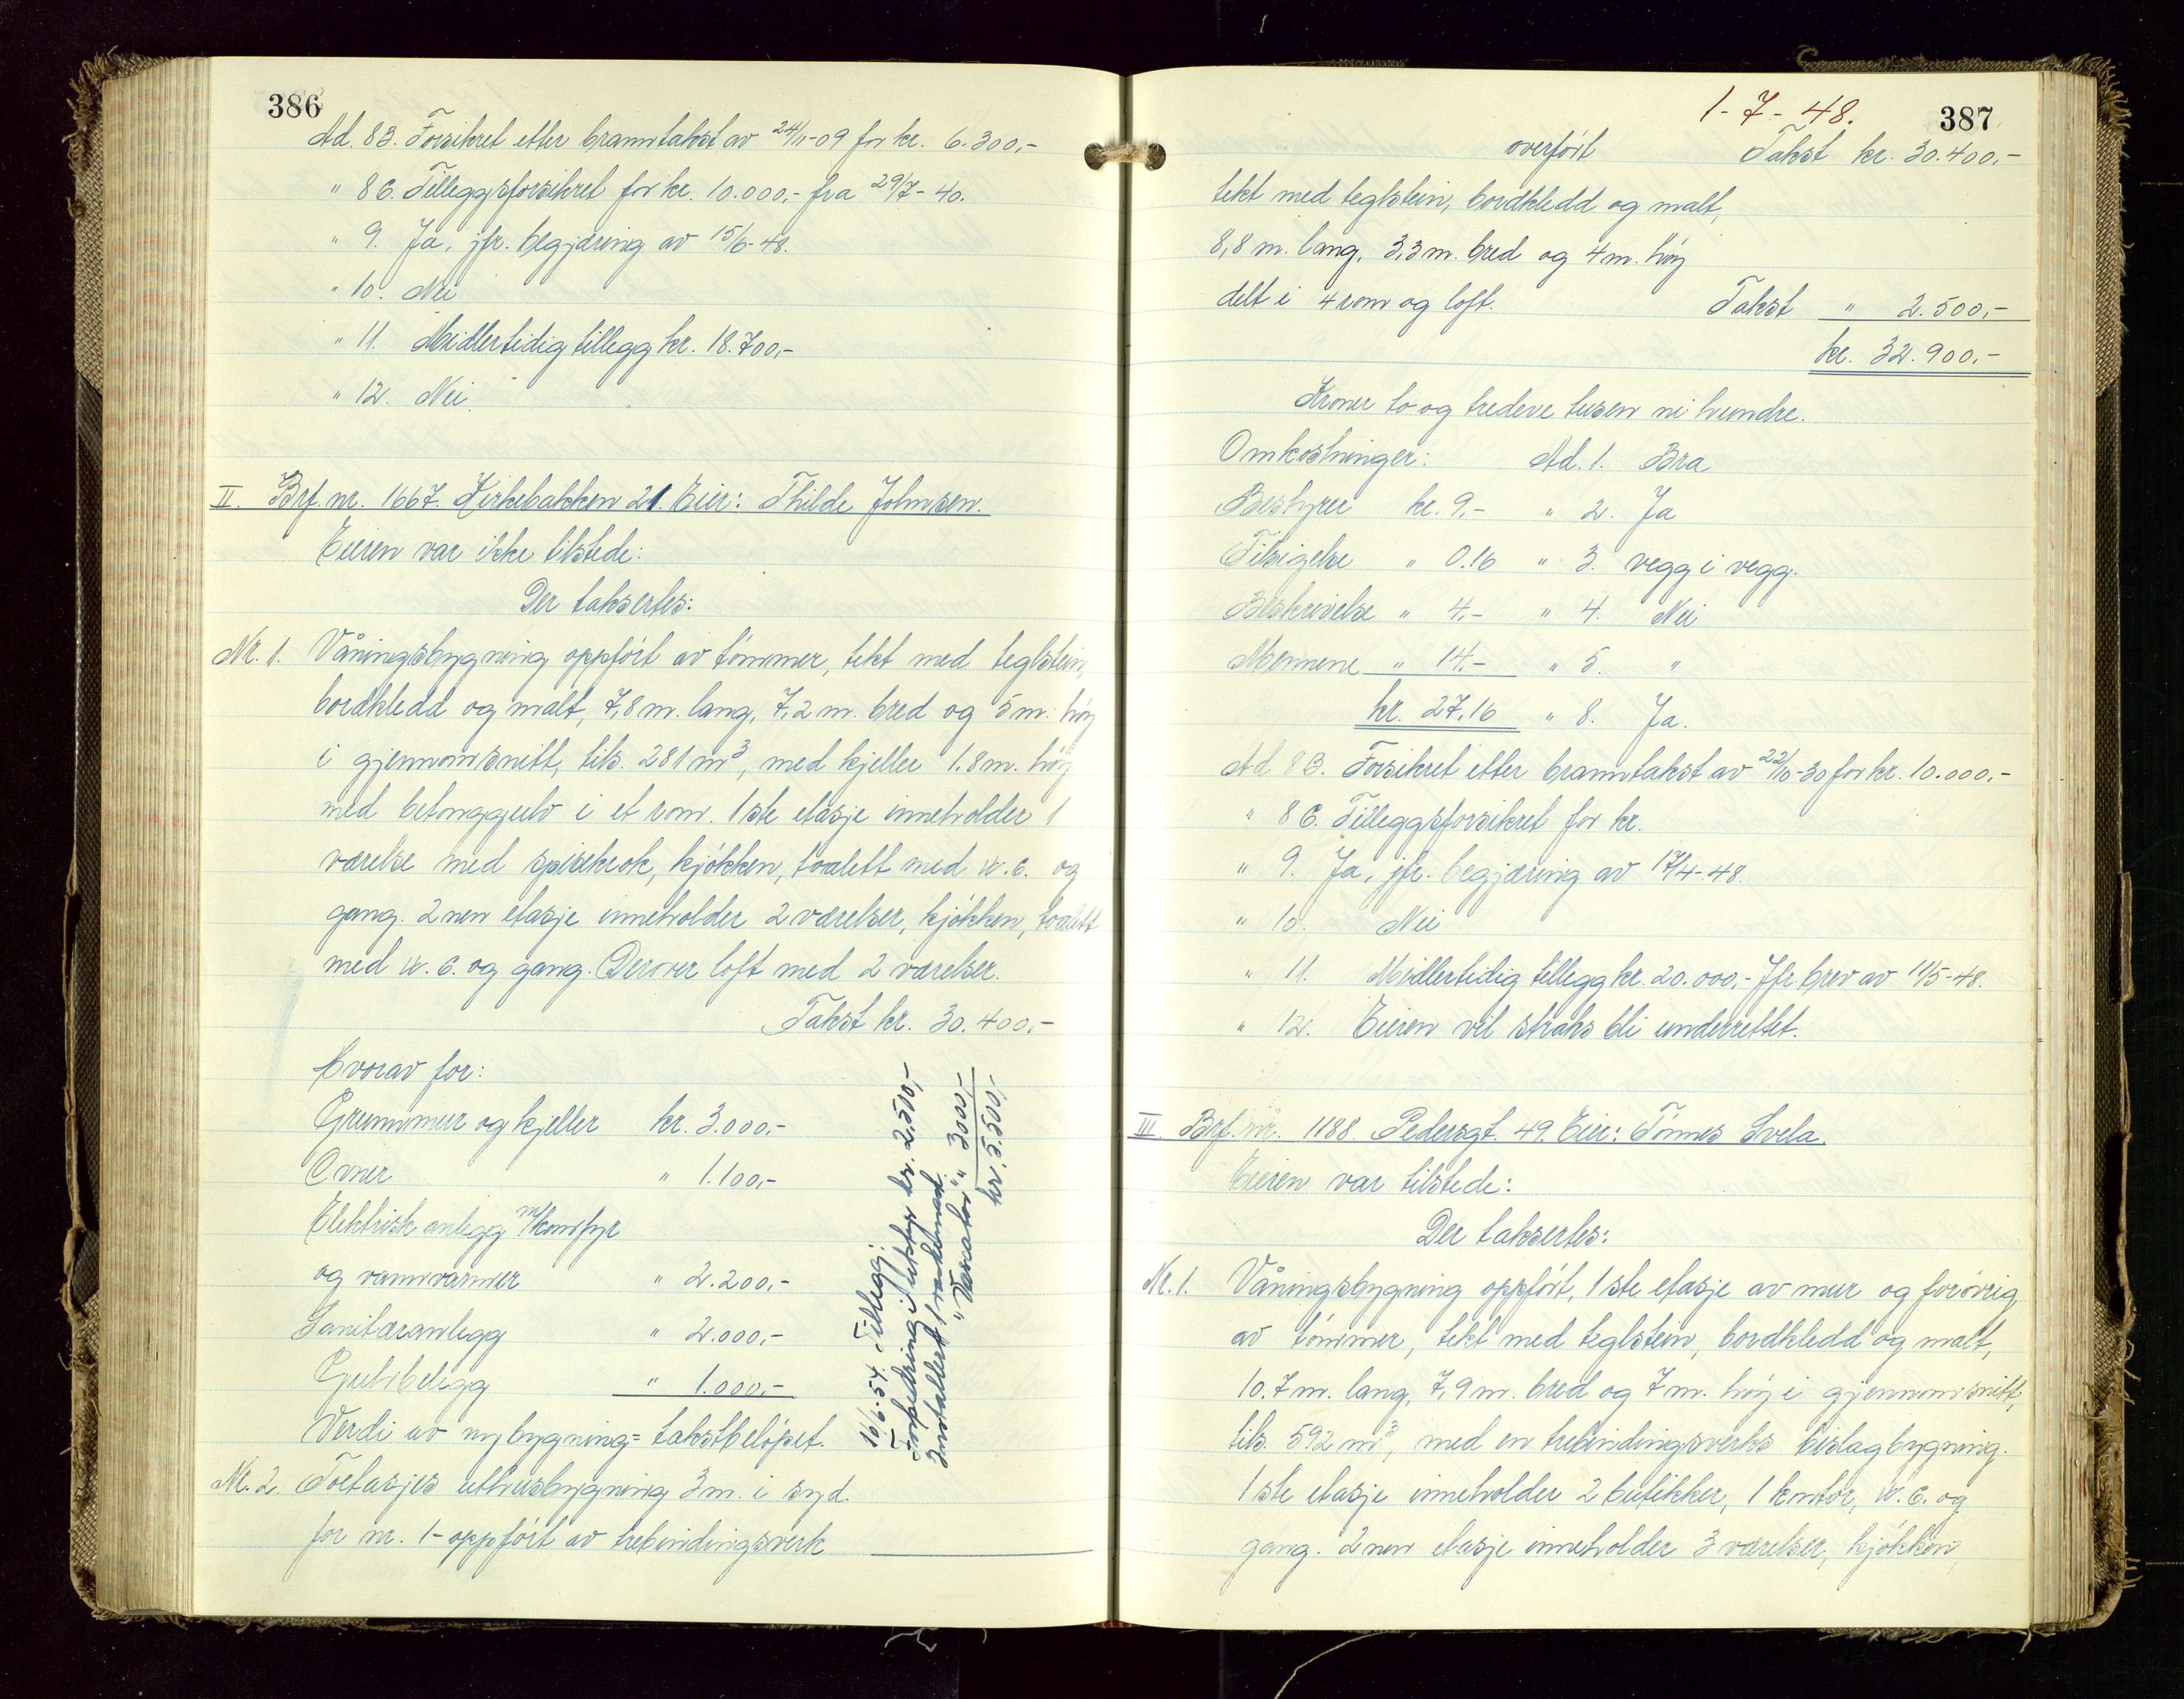 386
Ad. 8B. Forsikret etter branntakst av 24/1-09 for kr. 6.300,-
" 8C. Tilleggsforsikret for kr. 10.000,- fra 29/7-40.
" 9. Ja, jfr. begjæring av 15/6-48.
" 10. Nei
" 11. Midlertidig tillegg kr. 18.700,-
" 12. Nei.
II. Brf. nr. 1667. Kirkebakken 21. Eier: Thilde Johnsen.
Eieren var ikke tilstede:
Der taksertes:
Nr. 1. Våningsbygning oppført av tømmer, tekt med teglstein,
bordkledd og malt, 7,8 m. lang, 7,2 m. bred og 5 m. høy
i gjennomsnitt, tils. 281 m³, med kjeller 1.8 m. høy
med betonggulv i et rom. 1ste etasje inneholder 1
værelse med spisekrok, kjøkken, toalett med W.C. og
gang. 2nen etasje inneholder 2 værelser, kjøkken, toalett
med W.C. og gang. Derover loft med 2 værelser.
Takst kr. 30.400,-
Hvorav for:
Grunnmur og kjeller kr. 3.000,-
Ovner " 1.100,-
Elektrisk anlegg m/komfyr
og vannvarmer " 2.200,-
Sanitæranlegg " 2.000,-
Gulvbelegg " 1.000,-
Verdi av nybygning = takstbeløpet.
Nr. 2. Toetasjes uthusbygning 3 m. i syd.
for nr. 1 - oppført av trebindingsverk
16/6-54. Tillegg:
Forbedring i utstyr kr. 2.500,-
Installert 1 vaskemask.
" Vascator " 3000,-
kr. 5.500,-
1-7-48.
387
overført Takst kr. 30.400,-
tekt med teglstein, bordkledd og malt,
8,8 m. lang, 3,3 m. bred og 4 m. høy
delt i 4 rom og loft. Takst " 2.500,-
kr. 32.900,-
Kroner to og tredeve tusen ni hundre.
Omkostninger: Ad. 1. Bra
Bestyrer kr. 9,- " 2. Ja
Tilsigelse " 0.16 " 3. vegg i vegg.
Beskrivelse " 4,- " 4. Nei
Mennene " 14,- " 5. "
kr. 27,16 " 8. Ja.
Ad 8B. Forsikret etter branntakst av 22/10-30 for kr. 10.000,-
" 8C. Tilleggsforsikret for kr.
" 9. Ja, jfr. begjæring av 17/4-48.
" 10. Nei
" 11. Midlertidig tillegg kr. 20.000,- Jfr. brev av 11/5-48.
" 12. Eieren vil straks bli underrettet.
III. Brf. nr. 1188. Pedersgt. 49. Eier: Tønnes Svela.
Eieren var tilstede:
Der taksertes:
Nr. 1. Våningsbygning oppført, 1ste etasje av mur og forøvrig
av tømmer, tekt med teglstein, bordkledd og malt,
10.7 m. lang, 7,9 m. bred og 7 m. høy i gjennomsnitt,
tils. 592 m³, med en trebindingsverks bislagbygning.
1ste etasje inneholder 2 butikker, 1 kontor, W.C. og
gang. 2nen etasje inneholder 3 værelser, kjøkken,